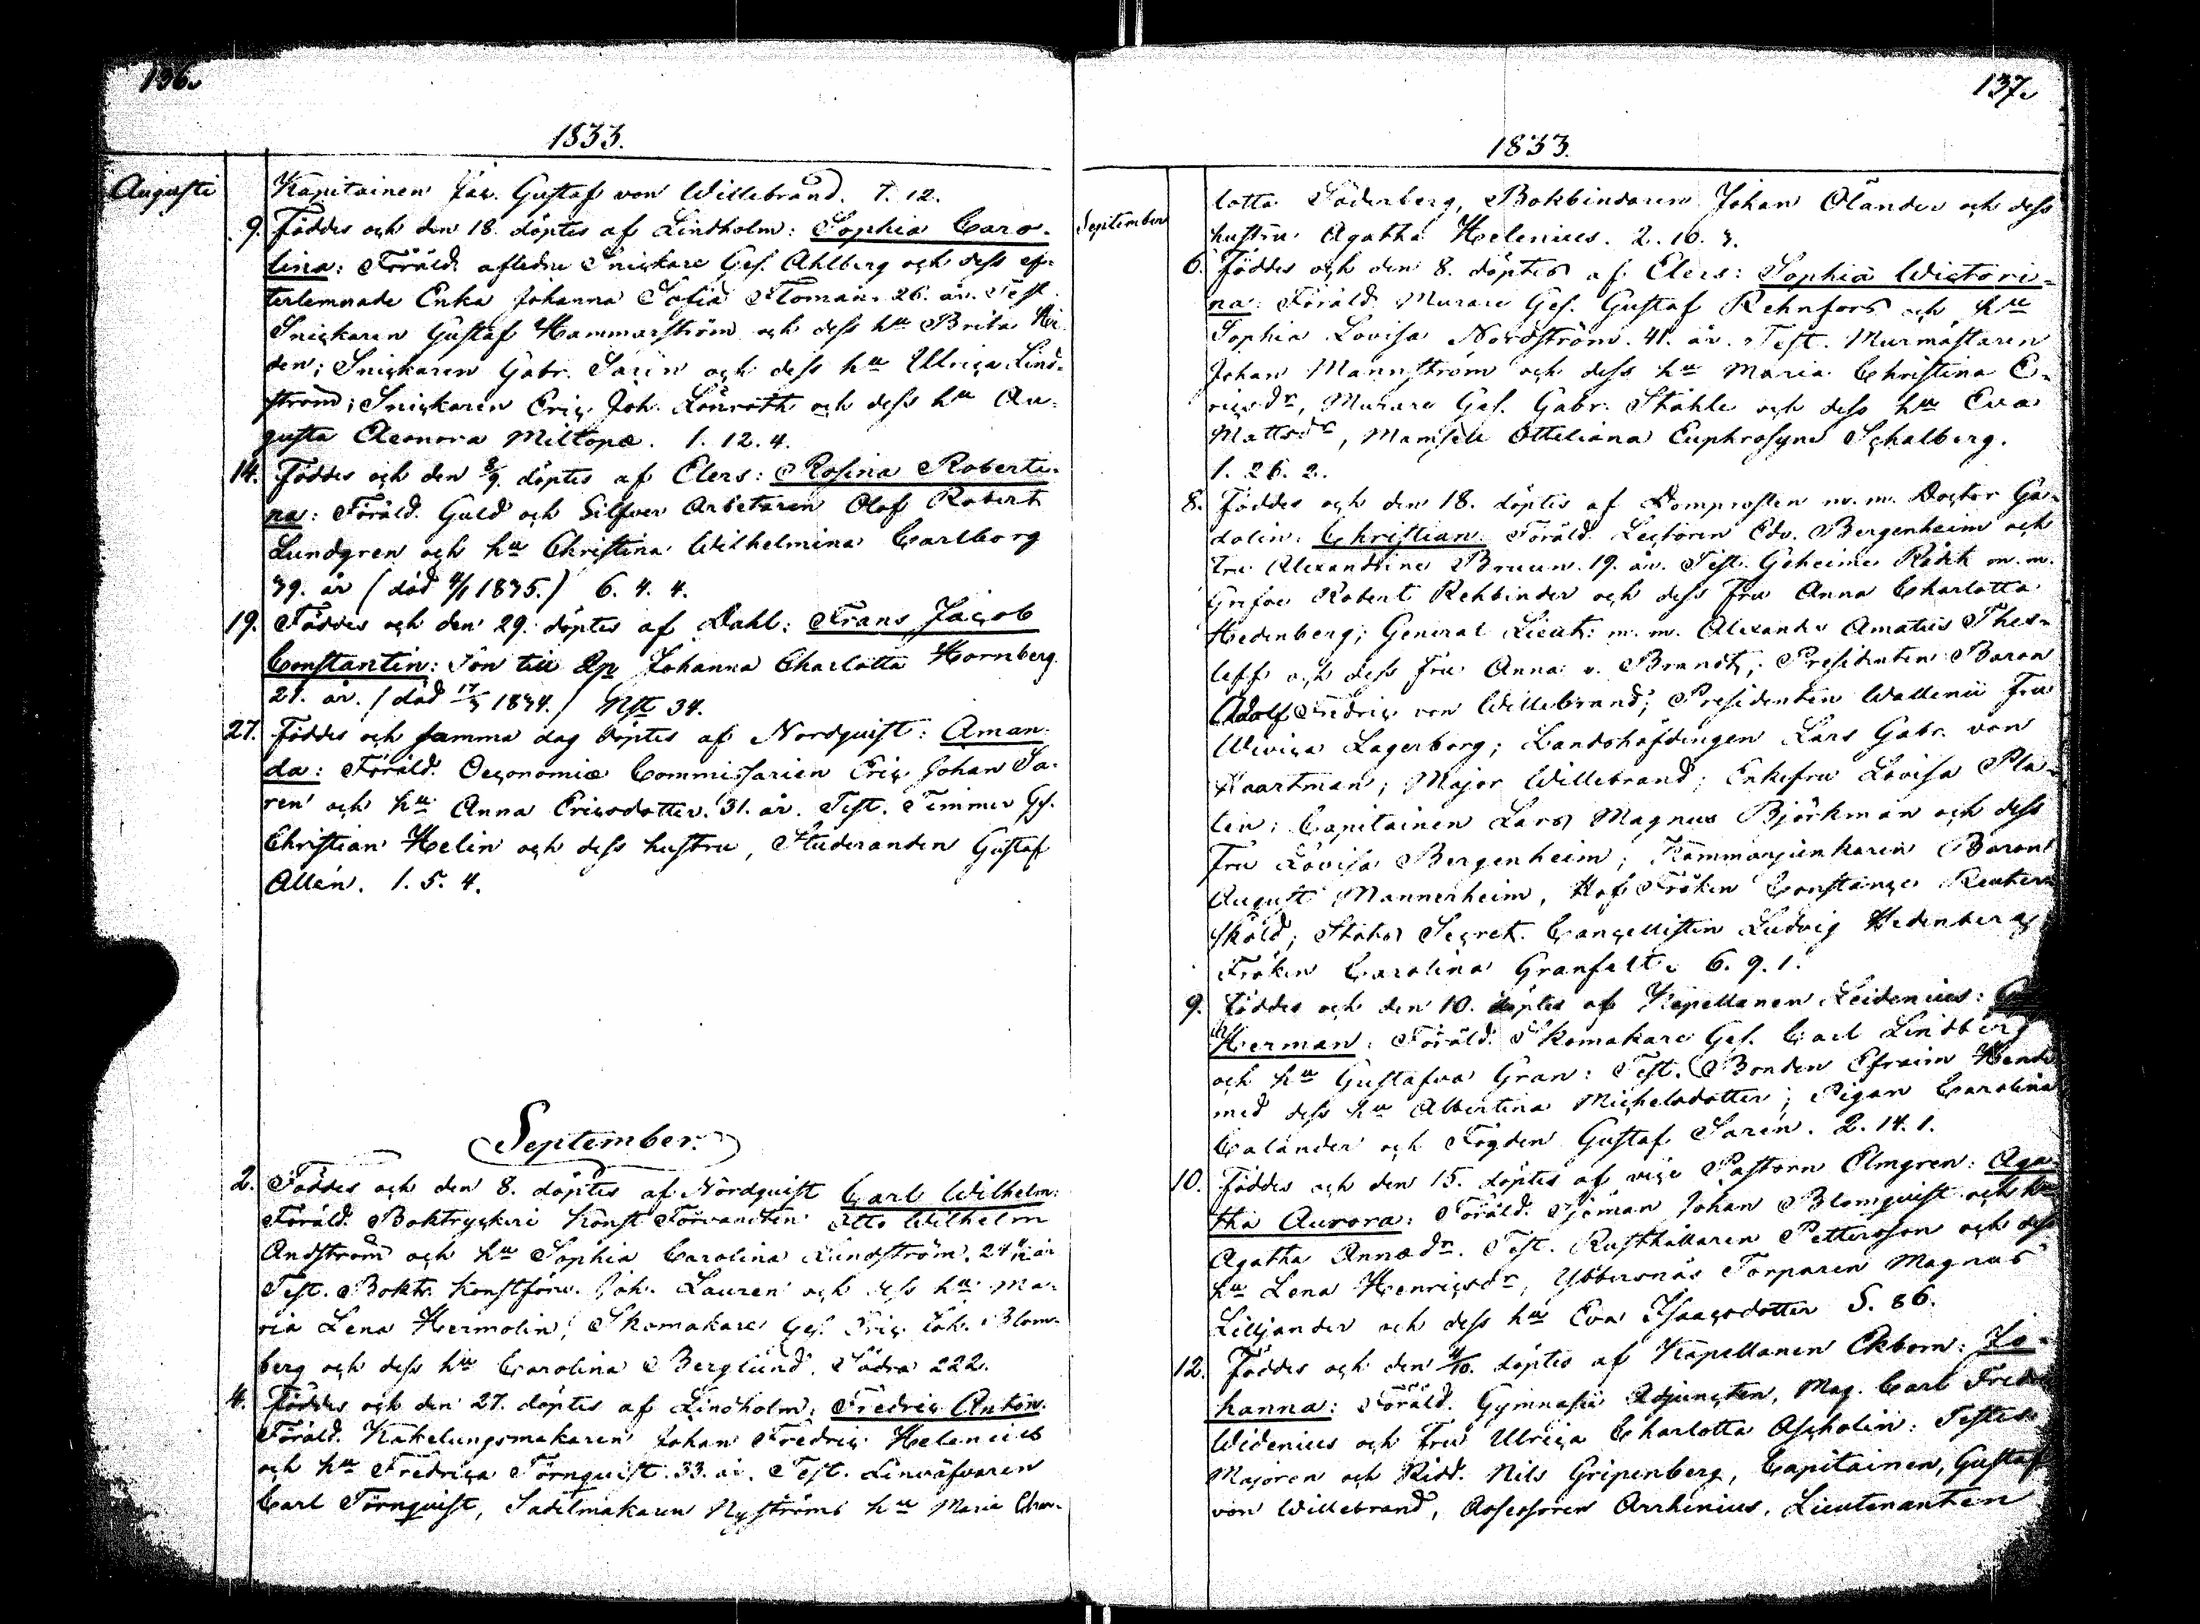 136.
1833.
Augusti
Kapitainen Gustaf von Willebrand. 1. 12.
9. Föddes och den 18. döptes af Lindholm: Sophia Caro-
lina: Föräld. afledne Snickare Ges. Ahlberg och dess ef-
terlemnade Enka Johanna Sofia Floman. 26. år. Test.
Snickaren Gustaf Hammarström och dess hu Brita
den; Snickaren Gabr. Sarin och dess hu Ulrica Lind-
ström; Snickaren Eric Joh. Lönroth och dess hu Au-
gusta Eleonora Miltopæ. 1. 12. 4.
14. Föddes och den 8/9 döptes af Elers: Rosina Roberti-
na: Föräld. Guld och Silfver Arbetaren Olof Robert
Lundgren och hu Christina Wilhelmina Carlborg
39. år (död 4/1 1835.) 6. 4. 4.
19. Föddes och den 29. döptes af Dahl: Frans Jacob
Constantin: Son till Johanna Charlotta Hornberg.
21. år. (död 17/3 1834.) 34.
27. Föddes och samma dag döptes af Nordquist: Aman-
da: Föräld. Oeconomiæ Commissarien Eric Johan Sa-
ren och hu Anna Ericsdotter. 31. år. Test. Timmer Ges.
Christian Helin och dess hustru, Studeranden Gustaf
Allén. 1. 5. 4.
September.
2. Föddes och den 8. döptes af Nordquist Carl Wilhelm:
Föräld. Boktryckeri Konst Förvandten Otto Wilhelm
Andström och hu Sophia Carolina Lindström. 24 år
Test. Boktr. Konstförv. Joh. Lauren och dess hu Ma-
ria Lena Hermolin; Skomakare Ges. Eric Joh. Blom-
berg och dess hu Carolina Berglund. Södra 222.
4. Föddes och den 27. döptes af Lindholm: Fredric Anton.
Föräld. Kakelungsmakaren Johan Fredric Helenius
och hu Fredrica Törnquist. 33. år. Test. Linväfvaren
Carl Törnquist, Sadelmakaren Nyströms hu Maria Char-
137.
1833.
September
lotta Söderberg, Bokbindaren Johan Ölander och dess
hustru Agatha Helenius. 2. 10. 3.
6. Föddes och den 8. döptes af Elers: Sophia Wictori-
na: Föräld. Murare Ges. Gustaf Rehnfors och hu
Sophia Lovisa Nordström. 41. år. Test. Murmästaren
Johan Mannström och dess hu Maria Christina E-
ricsdr, Murare Ges. Gabr. Ståhle och dess hu Eva
Mattsdr, Mamsell Otteliana Euphrosyne Schalberg.
1. 26. 2.
8. Föddes och den 18. döptes af Domprosten m.m. Doctor Ga-
dolin: Christian Föräld. Lectoren Edv. Bergenheim och
Fru Alexandrine Bruun. 19. år. Test. Geheime Rådet m.m.
Grefve Robert Rehbinder och dess Fru Anna Charlotta
Hedenberg; General Lieut: m.m. Alexander Amatus Thes-
leff och dess Fru Anna v. Brandt; Presidenten Baron
Adolf Fredric von Willebrand; Presidenten Wallenii Fru
Wivica Lagerborg; Landshöfdingen Lars Gabr. von
Haartman; Major Willebrand; Enkefru Lovisa Pla-
tin; Capitainen Lars Magnus Björkman och dess
Fru Lovisa Bergenheim; Kammarjunkaren Baron
August Mannerheim, Hof Fröken Constance Reuter-
skold; Stats Secret. Cancellisten Ludvig Hedenberg
Fröken Carolina Granfelt. 6. 9. 1.
9. Föddes och den 10. döptes af Kapellanen Leidenius:
Herman: Föräld. Skomakare Ges. Carl Lindberg
och hu Gustafva Gran: Test. Bonden Efraim
med dess hu Albertina Michelsdotter; Pigan Carolina
Calander och Fogden Gustaf Saren. 2. 14. 1.
10. Föddes och den 15. döptes af vice Pastorn Elmgren: Aga-
tha Aurora: Föräld. Sjöman Johan Blomquist och hu
Agatha Annædr. Test. Rusthållaren Pettersson och dess
hu Lena Henricsdr, Ybbersnäs Torparen Magnus
Liljander och dess hu Eva Isaacsdotter S. 86.
12. Föddes och den 4/10. döptes af Kapellanen Ekbom: Jo-
hanna: Föräld. Gymnasii Adjuncten, Mag. Carl Fredr
Widenius och Fru Ulrica Charlotta Ascholin: Testes
Majoren och Ridd. Nils Gripenberg, Capitainen, Gustaf
von Willebrand, Assessoren Arrhenius, Lieutenanten